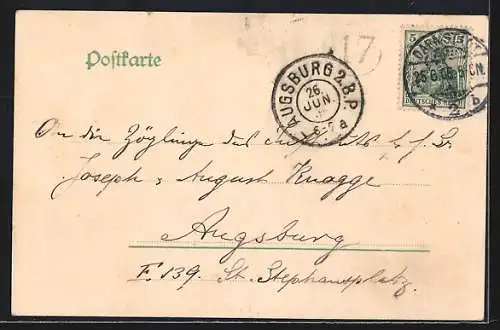 Postkarte
5
17
DARMSTADT
25.6.
2 b
AUGSBURG 2.B.P.
26.
JUN.
6-7 a
An die Zöglinge des Instituts b. St.
Joseph & August Knagge
Augsburg
E 139. St. Stephansplatz.